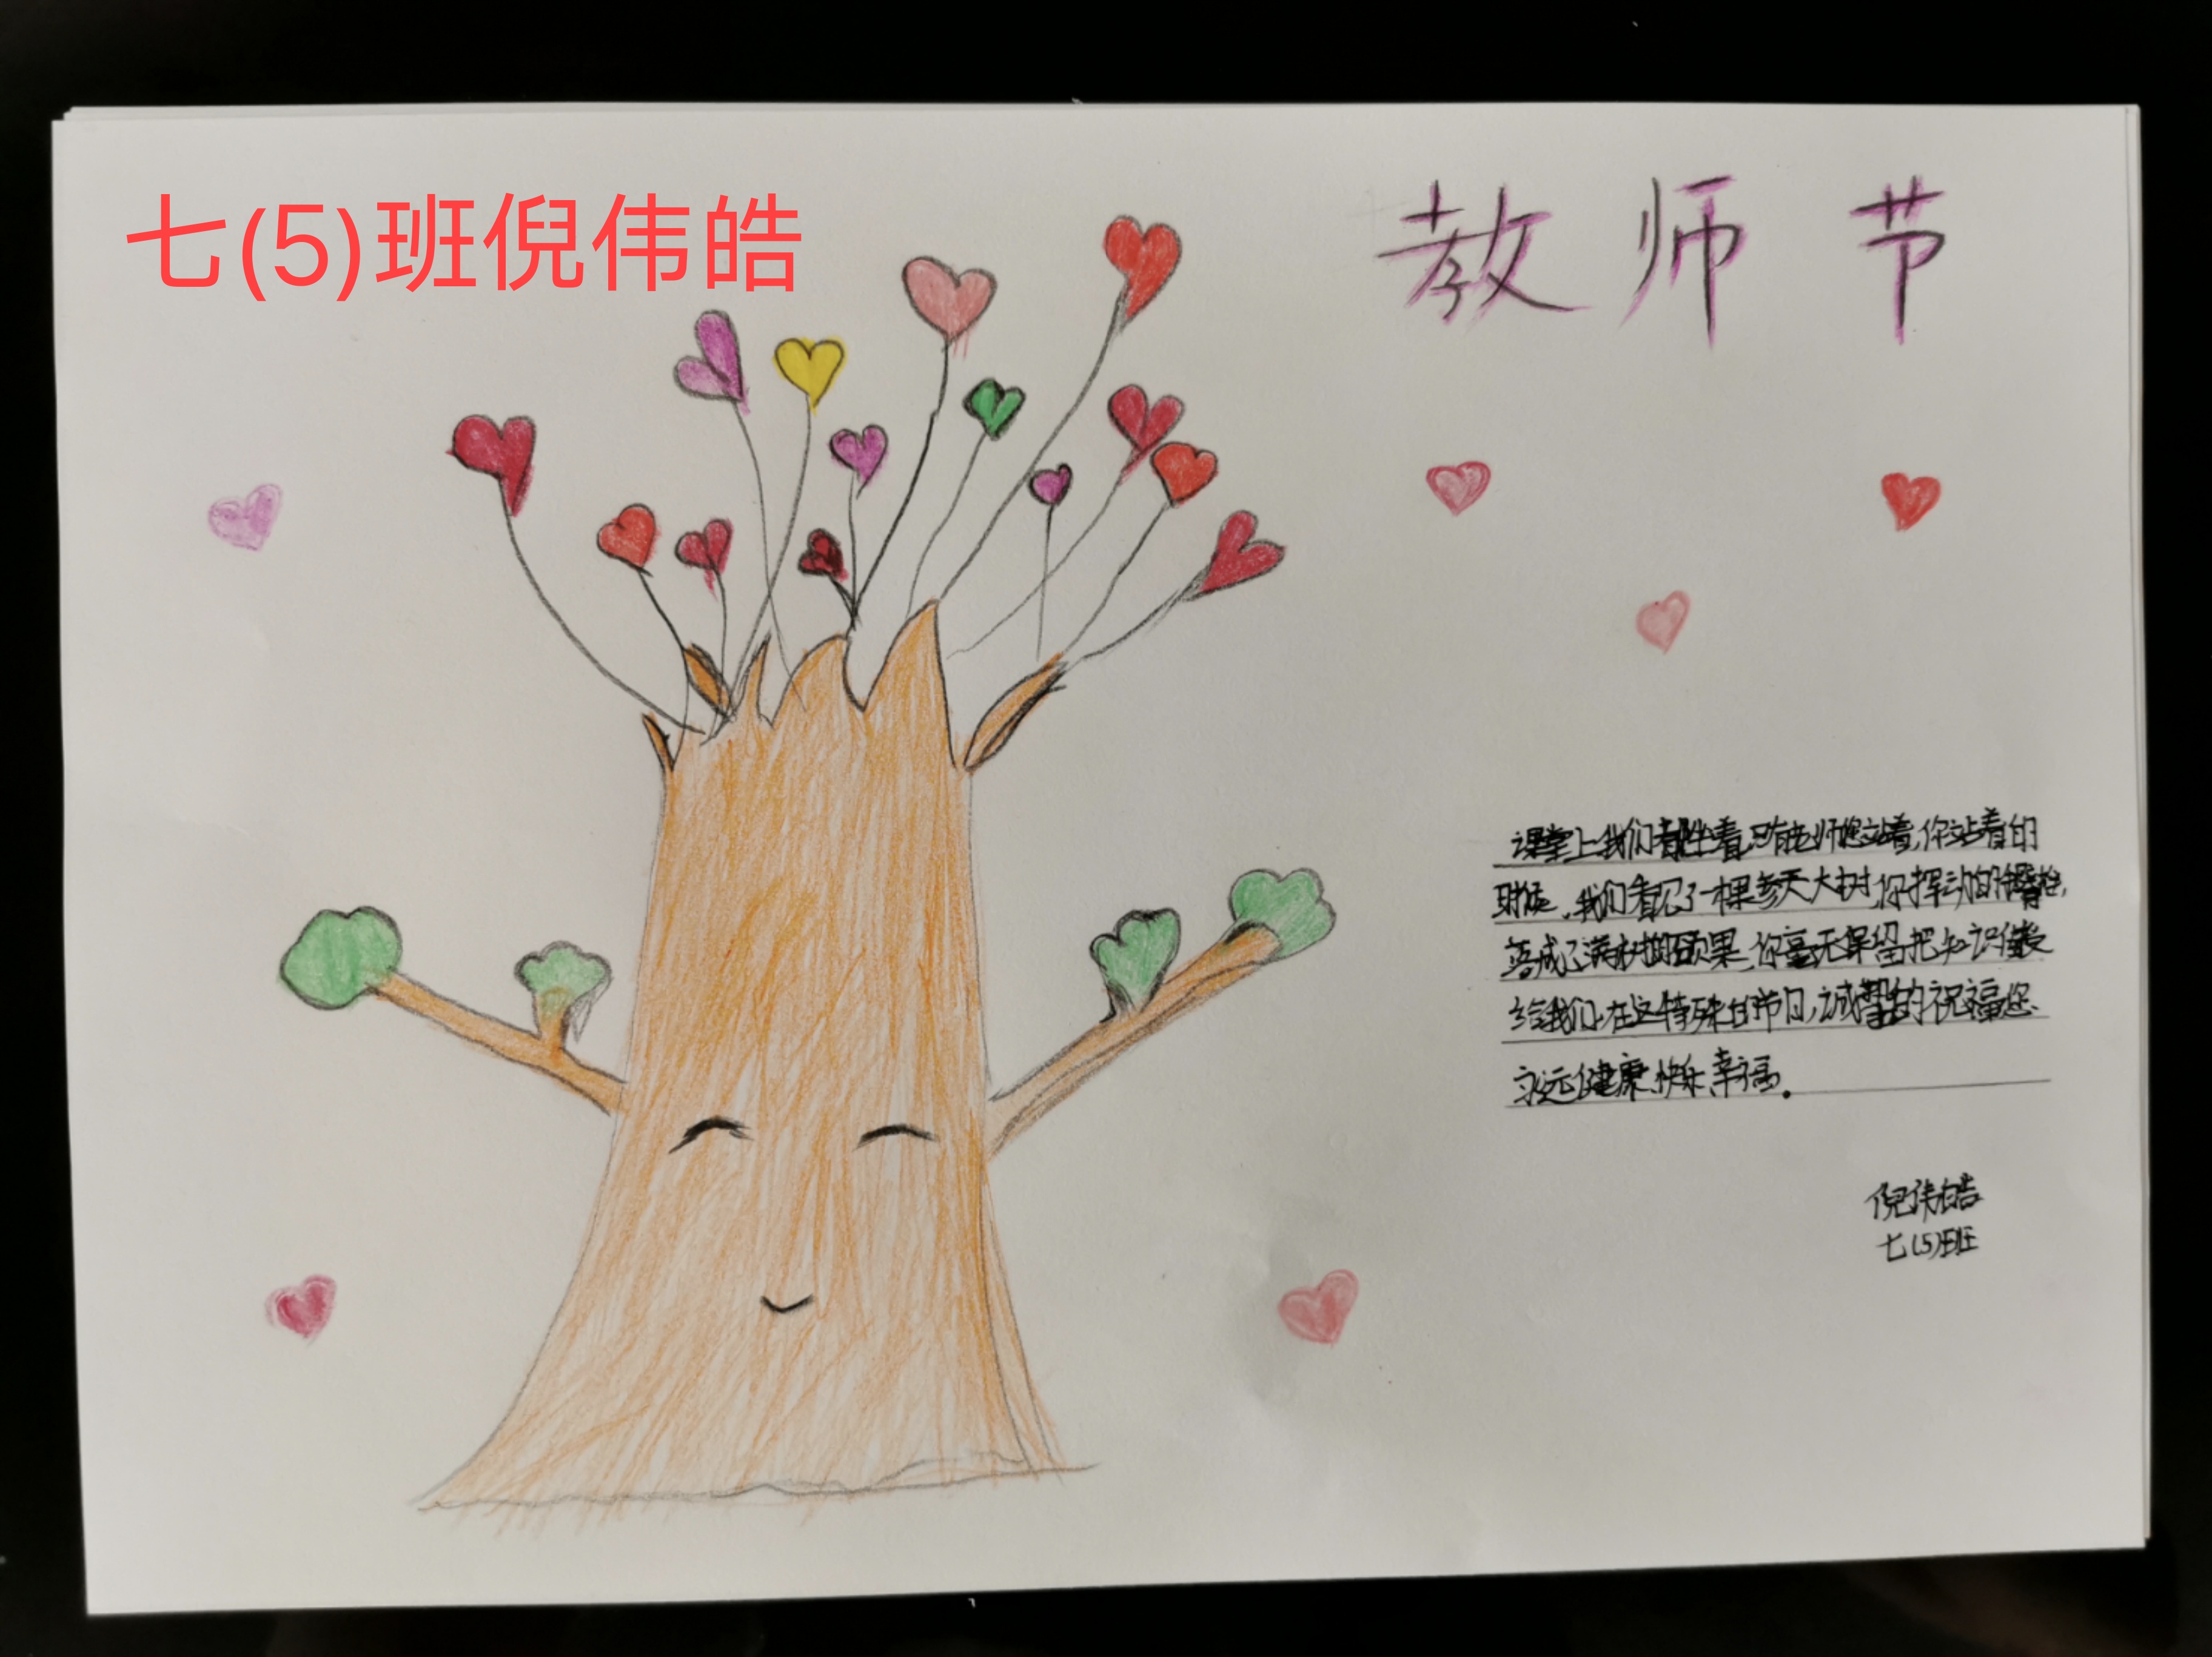 七(5)班倪伟皓
教师节
课堂上我们都坐着,只有老师您站着,你站着的
时候,我们看见了一棵参天大树,你挥动的
落成了满树的硕果,你毫无保留把知识传授
给我们,在这特殊的节日,诚挚的祝福您
永远健康、快乐、幸福。
倪伟皓
七(5)班